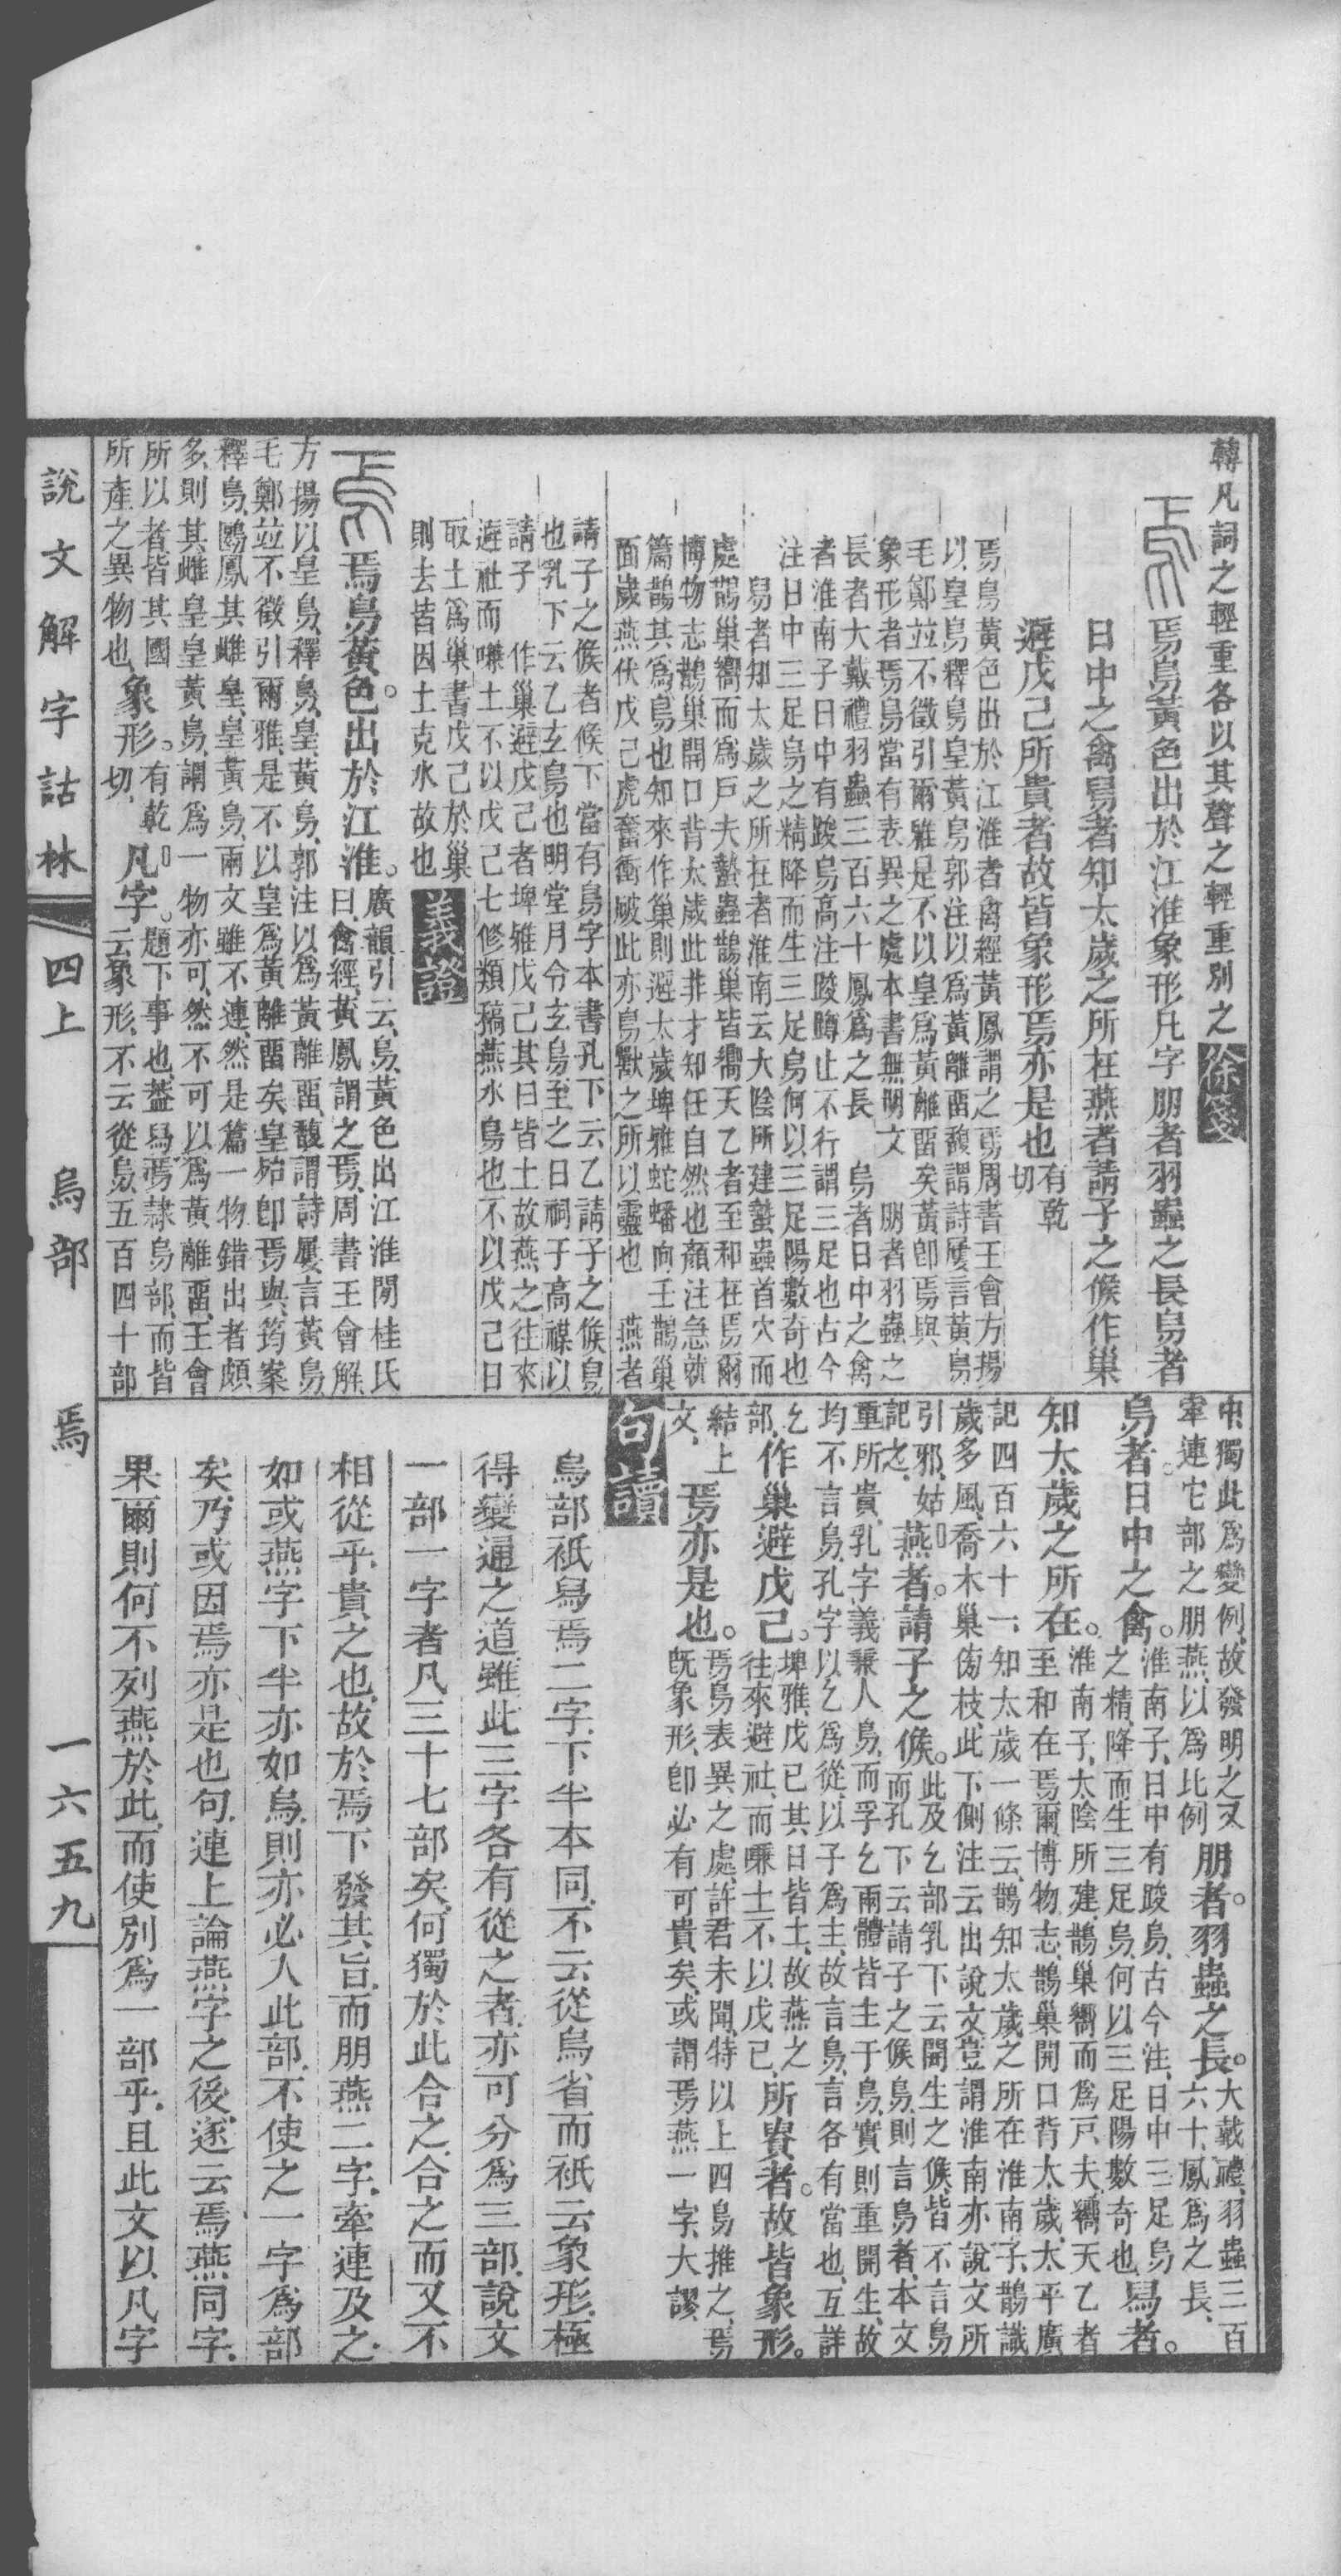 韓凡詞之輕重各以其聲之輕重別之 徐箋
焉鳥黃色出於江淮象形凡字朋者羽蟲之長烏者
日中之禽舄者知太歲之所在燕者請子之候作巢
避戊己所貴者故皆象形焉亦是也 有乾切
焉鳥黃色出於江淮者禽經黃鳳謂之焉周書王會方揚
以皇鳥釋鳥皇黃鳥郭注以爲黃離畱馥謂詩屢言黃鳥
毛鄭竝不徵引爾雅是不以皇爲黃離畱矣黃卽焉與
象形者焉鳥當有表異之處本書無明文 朋者羽蟲之
長者大戴禮羽蟲三百六十鳳爲之長 烏者日中之禽
者淮南子日中有踆烏高注踆蹲止不行謂三足也古今
注日中三足烏之精降而生三足烏何以三足陽數奇也
舄者知太歲之所在者淮南云大陰所建蟄蟲首穴而
處鵲巢嚮而爲戶夫蟄蟲鵲巢皆嚮天乙者至和在焉爾
博物志鵲巢開口背太歲此非才知任自然也顏注急就
篇鵲其爲鳥也知來作巢則避太歲埤雅蛇蟠向壬鵲巢
面歲燕伏戊己虎奮衝破此亦鳥獸之所以靈也 燕者
請子之候者候下當有鳥字本書孔下云乙請子之候鳥
也乳下云乙玄鳥也明堂月令玄鳥至之日祠于高禖以
請子 作巢避戊己者埤雅戊己其日皆土故燕之往來
避社而嗛土不以戊己七修類稿燕水鳥也不以戊己日
取土爲巢書戊己於巢
則去皆因土克水故也 義證
焉鳥黃色。出於江淮。廣韻引云、鳥黃色出江淮閒、桂氏
曰、禽經、黃鳳謂之焉、周書王會解
方揚以皇鳥、釋鳥、皇、黃鳥、郭注以爲黃離畱、馥謂詩屢言黃鳥
毛鄭竝不徵引爾雅、是不以皇爲黃離畱矣、皇殆卽焉與、筠案
釋鳥、鶠鳳其雌皇、皇、黃鳥、兩文雖不連、然是篇一物錯出者頗
多、則其雌皇皇黃鳥、謂爲一物亦可、然不可以爲黃離畱、王會
所以者、皆其國
所產之異物也、象形。有乾切、凡字。題下事也、蓋舄焉隸烏部、而皆
云象形、不云從烏、五百四十部
中、獨此爲變例、故發明之、又
牽連它部之朋燕、以爲比例 朋者。羽蟲之長。大戴禮、羽蟲三百
六十、鳳爲之長、
烏者。日中之禽。淮南子、日中有踆烏、古今注、日中三足烏
之精、降而生三足烏、何以三足、陽數奇也、舄者。
知太歲之所在。淮南子、太陰所建、鵲巢嚮而爲戶、夫嚮天乙者
至和在焉爾、博物志、鵲巢開口背太歲、太平廣
記四百六十一、知太歲一條云、鵲知太歲之所在、淮南子、鵲識
歲多風、喬木巢傍枝、此下側注云出說文、豈謂淮南亦說文所
引邪、姑
記之、燕者。請子之候。此及乞部乳下云開生之候、皆不言鳥
而孔下云請子之候鳥、則言鳥者、本文
重所貴、乳字義兼人鳥、而孚乞兩體皆主于鳥、實則重開生、故
均不言鳥、孔字以乞爲從、以子爲主、故言鳥、言各有當也、互詳
乞
部、作巢避戊己。埤雅、戊己其日皆土、故燕之
往來避社、而嗛土不以戊己、所貴者。故皆象形。
結上
文、焉亦是也。焉鳥表異之處、許君未聞、特以上四鳥推之、焉
旣象形、卽必有可貴矣、或謂焉燕一字、大謬、
句讀
烏部祇舄焉二字、下半本同、不云從烏省而祇云象形、極
得變通之道、雖此三字各有從之者、亦可分爲三部、說文
一部一字者凡三十七部矣、何獨於此合之、合之而又不
相從乎、貴之也、故於焉下發其旨、而朋燕二字、牽連及之、
如或燕字下半亦如烏、則亦必入此部、不使之一字爲部
矣、乃或因焉亦是也句、連上論燕字之後、遂云焉燕同字、
果爾則何不列燕於此、而使別爲一部乎、且此文以凡字
說文解字詁林 四上 烏部 焉 一六五九